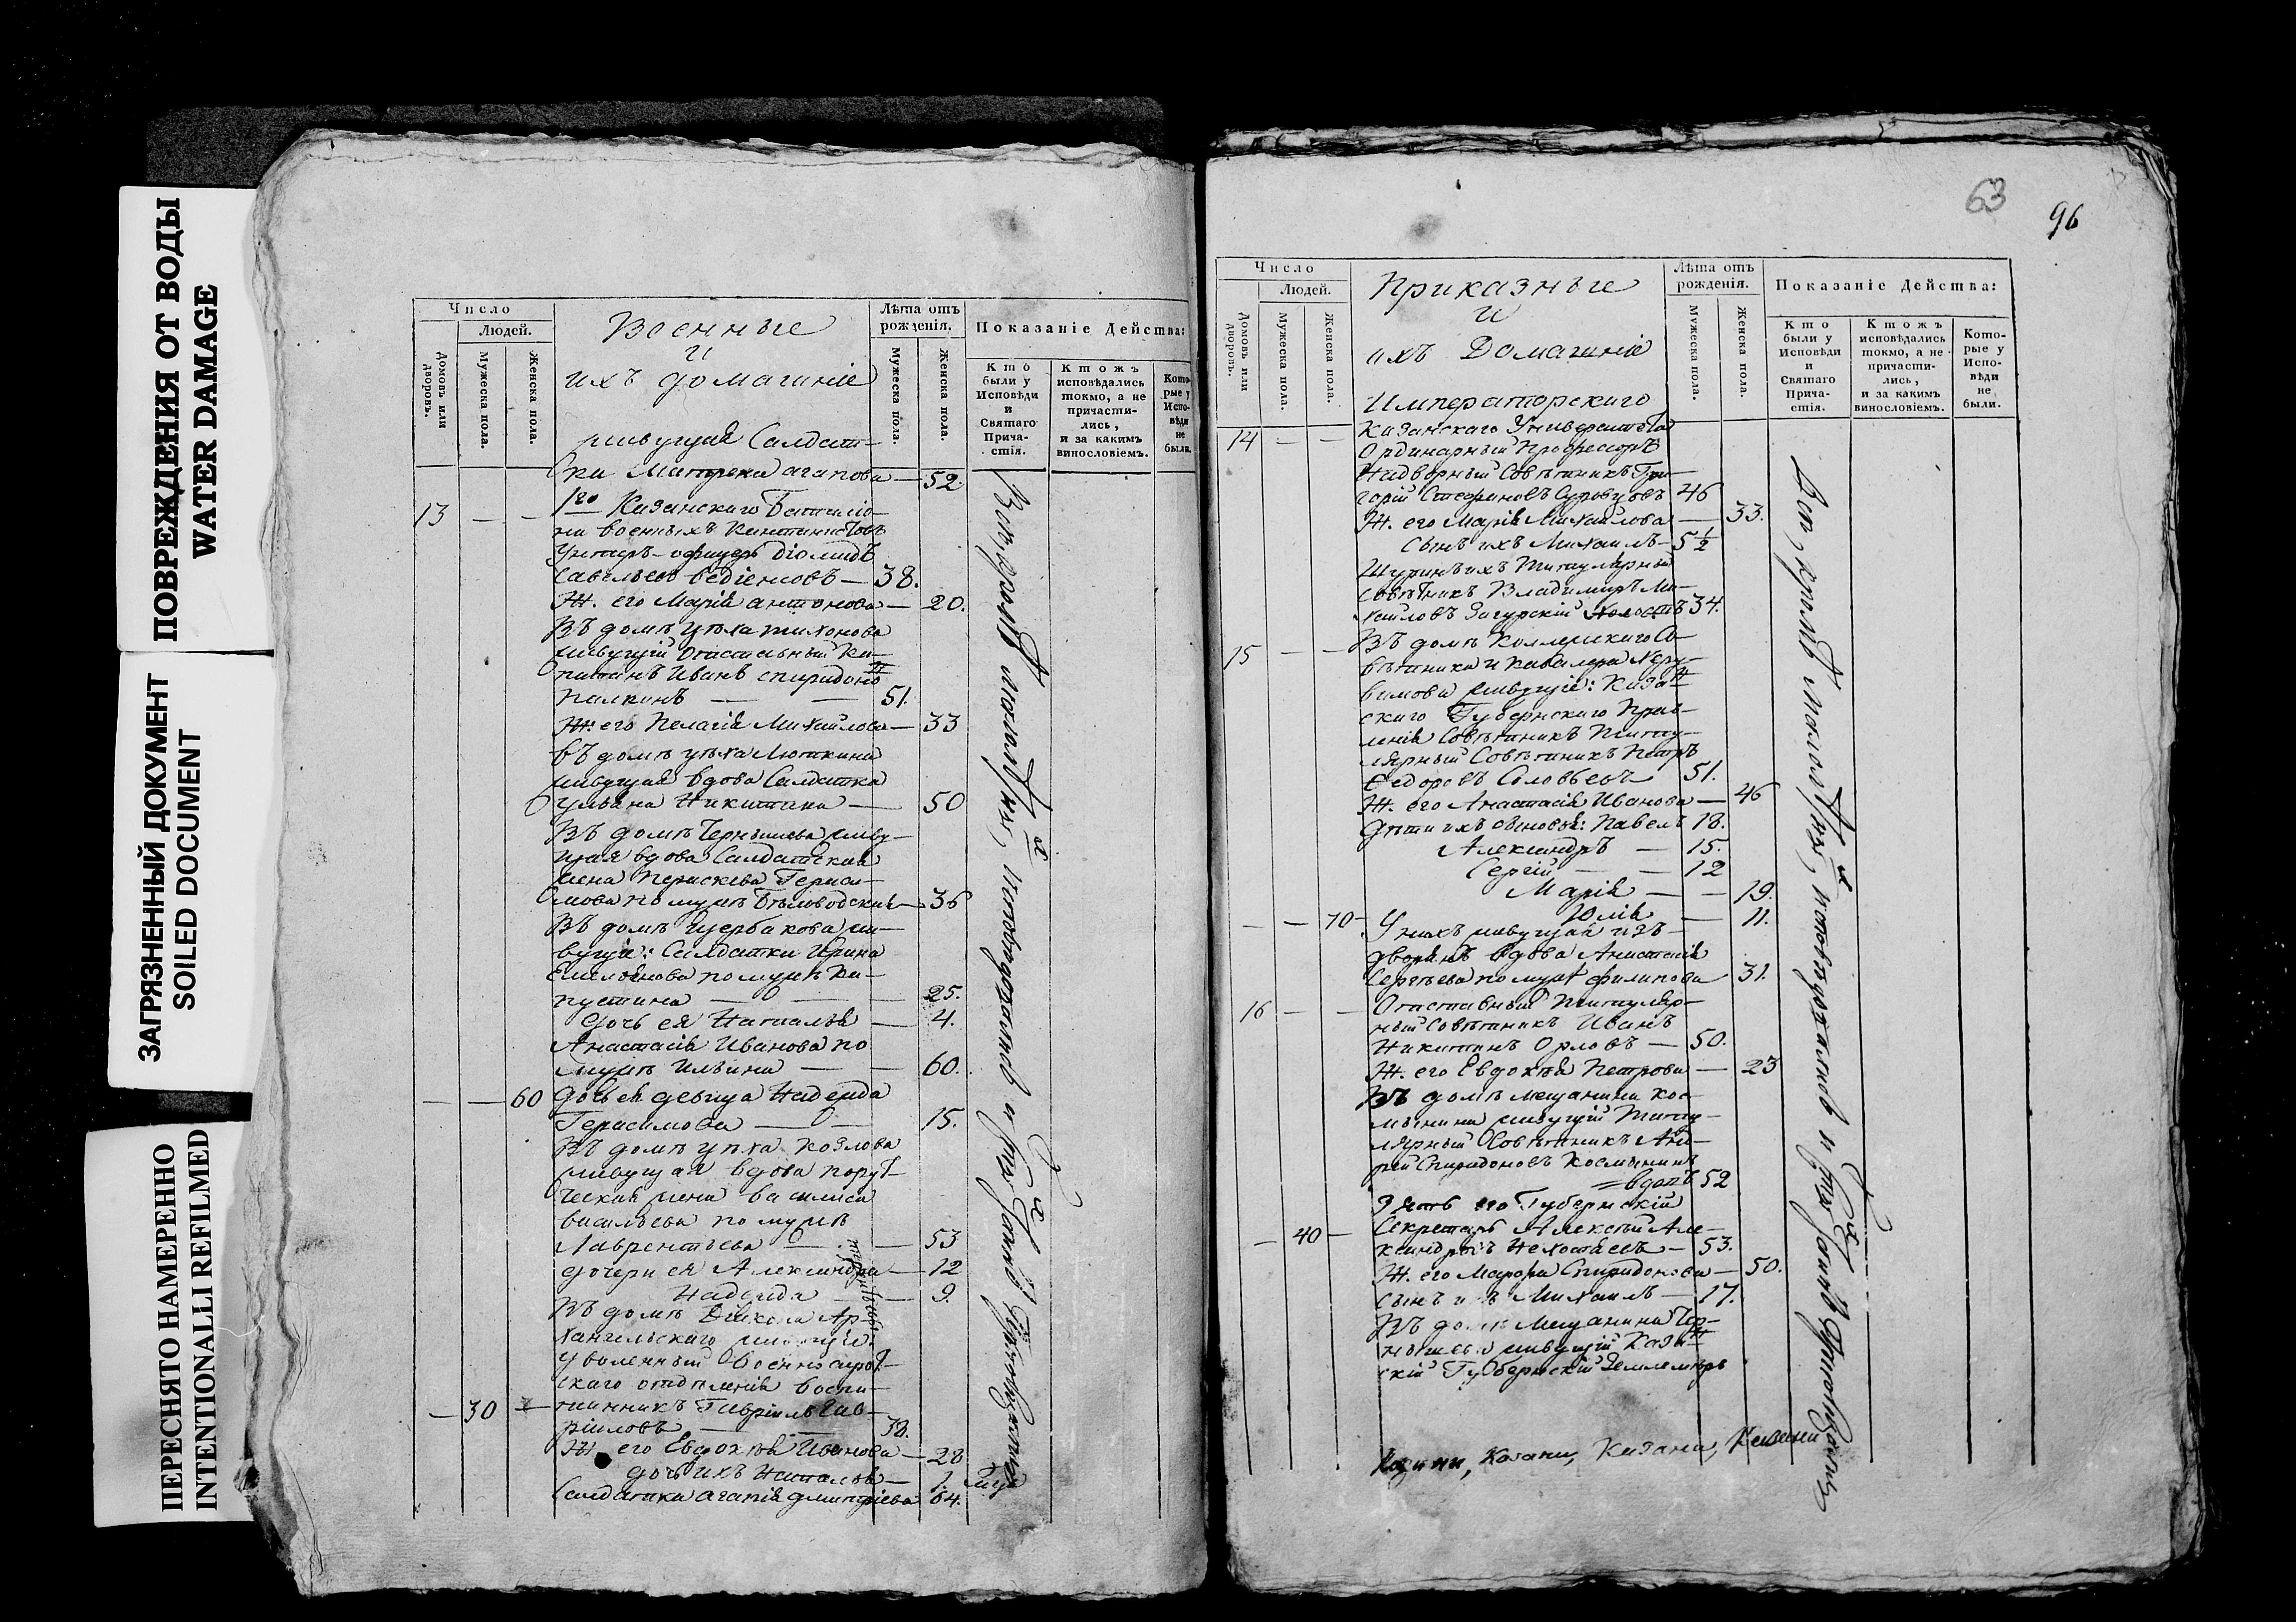 ПОВРЕЖДЕНИЯ ОТ ВОДЫ
WATER DAMAGE
ЗАГРЯЗНЕННЫЙ ДОКУМЕНТ
SOILED DOCUMENT
ПЕРЕСНЯТО НАМЕРЕННО
INTENTIONALLI REFILMED
Число
Людей.
Домовъ или дворовъ.
Мужеска пола.
Женска пола.
Военные
и
ихъ домашніе
Лѣта отъ рожденія.
Мужеска пола.
Женска пола.
Показаніе Действа:
Кто были у Исповѣди и Святаго Причастія.
Ктожъ исповѣдались токмо, а не причастились, и за какимъ винословіемъ.
Которые у Исповѣди не были.
живущая Салдат-
ка Матрена Агапова — 52.
13 — — 1го Казанскаго Баталіо-
на военныхъ Кантонистовъ
Унтеръ-офицеръ Діомидъ
Савельевъ — 38.
Ж. его Марія Антонова — 20.
Въ домѣ цѣха Тихонова
живущій Отставный Ка-
питанъ Иванъ Спиридоно
Палкинъ — 51.
Ж. его Пелагія Михайлова — 33
въ домѣ цѣха Люткина
живущая вдова Салдатка
Ульяна Никитина — 50
Въ домѣ Чернышева живу-
щая вдова Салдатская
жена Параскева Гераси-
мова по мужѣ Бѣловодская — 36
Въ домѣ Щербакова жи-
вущія: Салдатки Ирина
Емельянова по мужѣ Ка-
пустина — 25.
дочь ея Наталья — 4.
Анастасія Иванова по
мужѣ Ильина — 60.
— — 60 Дочь ея девица Надежда
Герасимова — 15.
Въ домѣ цѣха Козлова
живущая вдова поручи-
ческая жена Василиса
Васильева по мужѣ
Лаврентьева — 53
дочери ея Александра — 12
Надежда — 9.
Въ домѣ Діякона Ар-
хангельскаго живущіе:
Уволенный Военносирот-
скаго отдѣленія воспи-
— 30 — танникъ Гавріилъ Гав-
ріиловъ — 38.
Ж. его Евдокія Иванова — 28
дочь ихъ Наталья — 1.
Салдатка Агапія Дмитріева 64.
63
96
Число
Людей.
Домовъ или дворовъ.
Мужеска пола.
Женска пола.
Приказные
и
ихъ Домашніе
Лѣта отъ рожденія.
Мужеска пола.
Женска пола.
Показаніе Действа:
Кто были у Исповѣди и Святаго Причастія.
Ктожъ исповѣдались токмо, а не причастились, и за какимъ винословіемъ.
Которые у Исповѣди не были.
Императорскаго
14 — — Казанскаго Университета
Ординарный Профессоръ
Надворный Совѣтникъ Гри-
горій Стефановъ Суровцовъ 46
Ж. его Марія Михайлова — 33.
Сынъ ихъ Михаилъ — 5½
Шуринъ ихъ Титулярный
Совѣтникъ Владимиръ Ми-
хайловъ Загурскій Холостъ 34.
15 — — Въ домѣ Коллежскаго Со-
вѣтника и Кавалера Херу-
вимова живущіе: Казан-
скаго Губернскаго Прав-
ленія Совѣтникъ Титу-
лярный Совѣтникъ Петръ
Федоровъ Соловьевъ 51.
Ж. его Анастасія Иванова — 46
Дѣти ихъ сыновья: Павелъ 18.
Александръ — 15.
Сергій — 12
Марія — 19.
— — 70 — Юлія — 11.
У нихъ живущая изъ
дворянъ вдова Анастасія
Сергѣева по мужѣ Филипова 31.
16 — — Отставный Титуляр-
ный Совѣтникъ Иванъ
Никитинъ Орловъ — 50.
Ж. его Евдокія Петрова — 23
Въ домѣ мещанина Кос-
мынина живущій Титу-
лярный Совѣтникъ Анд-
рей Спиридоновъ Космынинъ
= вдовъ 52
Зять его Губернскій
— 40 — Секретарь Алексѣй Але-
ксандровъ Нехотяевъ — 53.
Ж. его Марфа Спиридонова — 50.
сынъ ихъ Михаилъ — 17.
Въ домѣ Мещанина Чер-
нышева живущій Казан-
скій Губернскій Землемѣръ
Казани, Казани, Казани, Казани